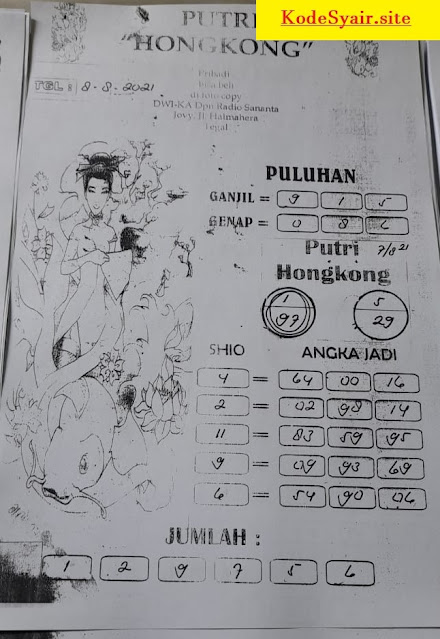 KodeSyair.site
PUTRI
"HONGKONG"
Pribadi
bisa beli
di foto copy
DWI-KA Dpn Radio Sananta
Jovy. Jl. Halmahera
Tegal
TGL : 8-8-2021
PULUHAN
GANJIL = 9 1 5
GENAP = 0 8 6
Putri 7/8 21
Hongkong
1 5
97 29
SHIO ANGKA JADI
4 = 64 00 16
2 = 02 98 14
11 = 83 59 95
9 = 09 93 69
6 = 54 90 06
JUMLAH :
1 2 9 7 5 6